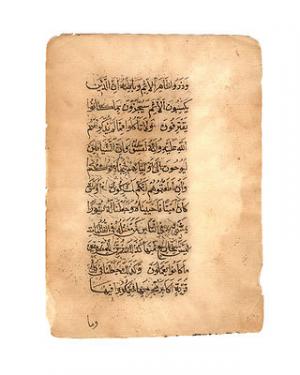 وَذَرُوا ظَاهِرَ الْإِثْمِ وَبَاطِنَهُ إِنَّ الَّذِينَ
يَكْسِبُونَ الْإِثْمَ سَيُجْزَوْنَ بِمَا كَانُوا
يَقْتَرِفُونَ وَلَا تَأْكُلُوا مِمَّا لَمْ يُذْكَرِ اسْمُ
اللَّهِ عَلَيْهِ وَإِنَّهُ لَفِسْقٌ وَإِنَّ الشَّيَاطِينَ
لَيُوحُونَ إِلَى أَوْلِيَائِهِمْ لِيُجَادِلُوكُمْ
وَإِنْ أَطَعْتُمُوهُمْ إِنَّكُمْ لَمُشْرِكُونَ أَوَمَنْ
كَانَ مَيْتًا فَأَحْيَيْنَاهُ وَجَعَلْنَا لَهُ نُورًا
يَمْشِي بِهِ فِي النَّاسِ كَمَنْ مَثَلُهُ فِي الظُّلُمَاتِ
لَيْسَ بِخَارِجٍ مِنْهَا كَذَلِكَ زُيِّنَ لِلْكَافِرِينَ
مَا كَانُوا يَعْمَلُونَ وَكَذَلِكَ جَعَلْنَا فِي كُلِّ
قَرْيَةٍ أَكَابِرَ مُجْرِمِيهَا لِيَمْكُرُوا فِيهَا
وما